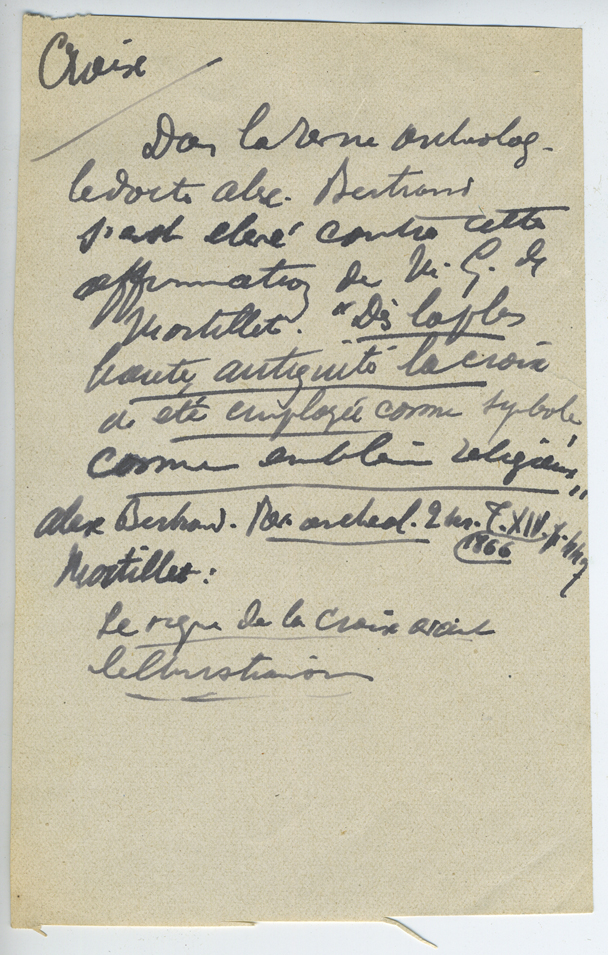 Croix
Dans la Revue archeolog-
le docte alex. Bertrand
s'est élevé contre cette
affirmation de M. G. de
Mortillet. "Dès la plus
haute antiquité la croix
a été employée comme symbole
comme emblème religieux"
alex Bertrand. Rev. archeol. 2 T. XIV. p.
1866
Mortillet:
Le signe de la Croix avant
le Christianisme